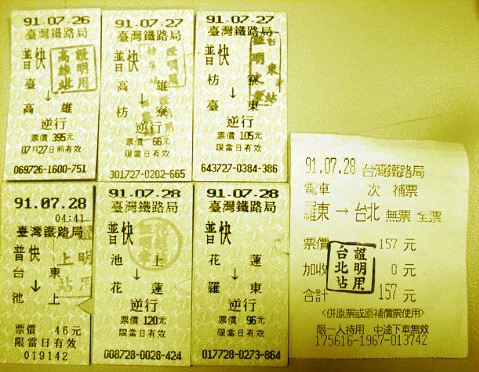 91.07.26
臺灣鐵路局
普快
高雄站
證明用
臺
↓
高雄
逆行
票價 395元
07月27日前有效
069726-1600-751
91.07.27
臺灣鐵路局
普快
高雄
↓
枋寮
逆行
票價 66元
限當日有效
301727-0202-665
91.07.27
臺灣鐵路局
普快
台東站
證明用
枋寮
↓
臺東
逆行
票價 105元
限當日有效
643727-0384-386
91.07.28
04:41
臺灣鐵路局
普快
台東
↓
池上
票價 46元
限當日有效
019142
91.07.28
臺灣鐵路局
普快
池上
↓
花蓮
逆行
票價 120元
限當日有效
008728-0028-424
91.07.28
臺灣鐵路局
普快
花蓮
↓
羅東
逆行
票價 96元
限當日有效
017728-0273-864
91.07.28 台灣鐵路局
電車 次 補票
羅東 → 台北 無票 全票
票價 157 元
加收 0 元
合計 157 元
證明用
台北站
<併原票或原補價票使用>
限一人持用 中途下車無效
175616-1967-013742